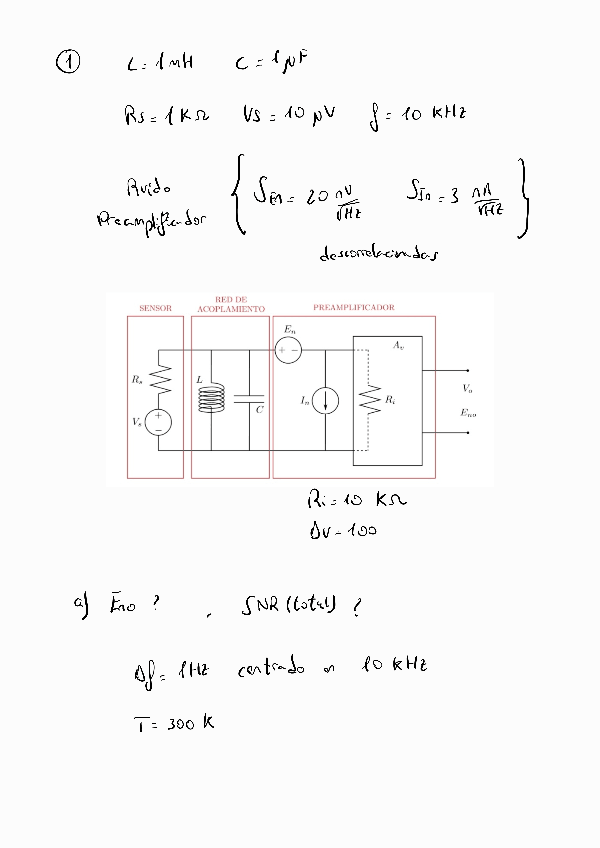 1 L = 1 mH C = 1 μF
Rs = 1 KΩ Vs = 10 μV f = 10 KHz
Ruido Preamplificador { SEn = 20 nV/√Hz SIn = 3 nA/√Hz }
descorrelacionadas
SENSOR RED DE ACOPLAMIENTO PREAMPLIFICADOR
En
Av
Rs L C In Ri Vo
Vs Eno
Ri = 10 KΩ
Av = 100
a) Eno ? , SNR (total) ?
Δf = 1Hz centrado en 10 kHz
T = 300 K